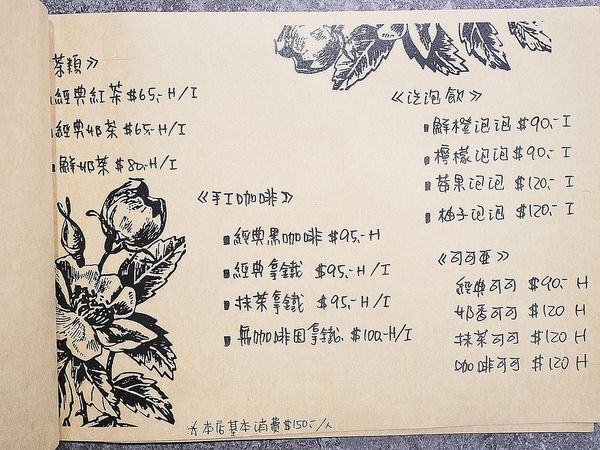 茶類》
經典紅茶 $65.-H/I
經典奶茶 $65.-H/I
鮮奶茶 $80.-H/I
《手工咖啡》
經典黑咖啡 $95.-H
經典拿鐵 $95.-H/I
抹茶拿鐵 $95.-H/I
無咖啡因拿鐵. $100.-H/I
《泡泡飲》
鮮橙泡泡 $90.-I
檸檬泡泡 $90.-I
莓果泡泡 $120.-I
柚子泡泡 $120.-I
《可可亞》
經典可可 $90.- H
奶香可可 $120 H
抹茶可可 $120 H
咖啡可可 $120 H
☆本店基本消費$150.-/人